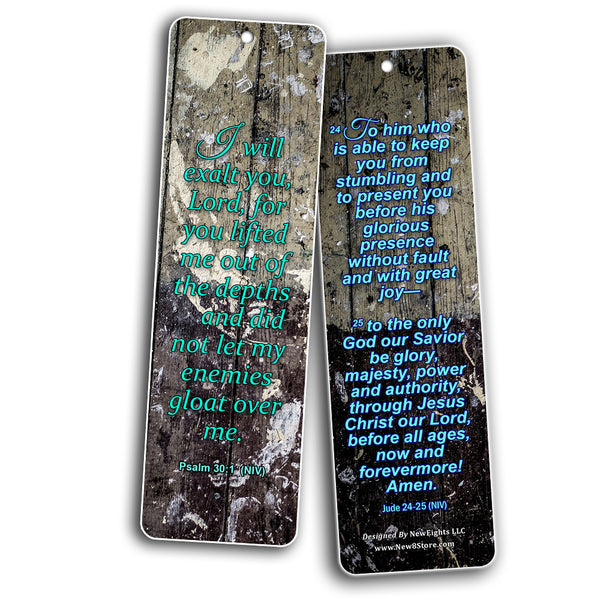 I will
exalt you,
Lord, for
you lifted
me out of
the depths
and did
not let my
enemies
gloat over
me.
Psalm 30:1 (NIV)
24 To him who
is able to keep
you from
stumbling and
to present you
before his
glorious
presence
without fault
and with great
joy—
25 to the only
God our Savior
be glory,
majesty, power
and authority,
through Jesus
Christ our Lord,
before all ages,
now and
forevermore!
Amen.
Jude 24-25 (NIV)
Designed By NewEights LLC
www.New8Store.com